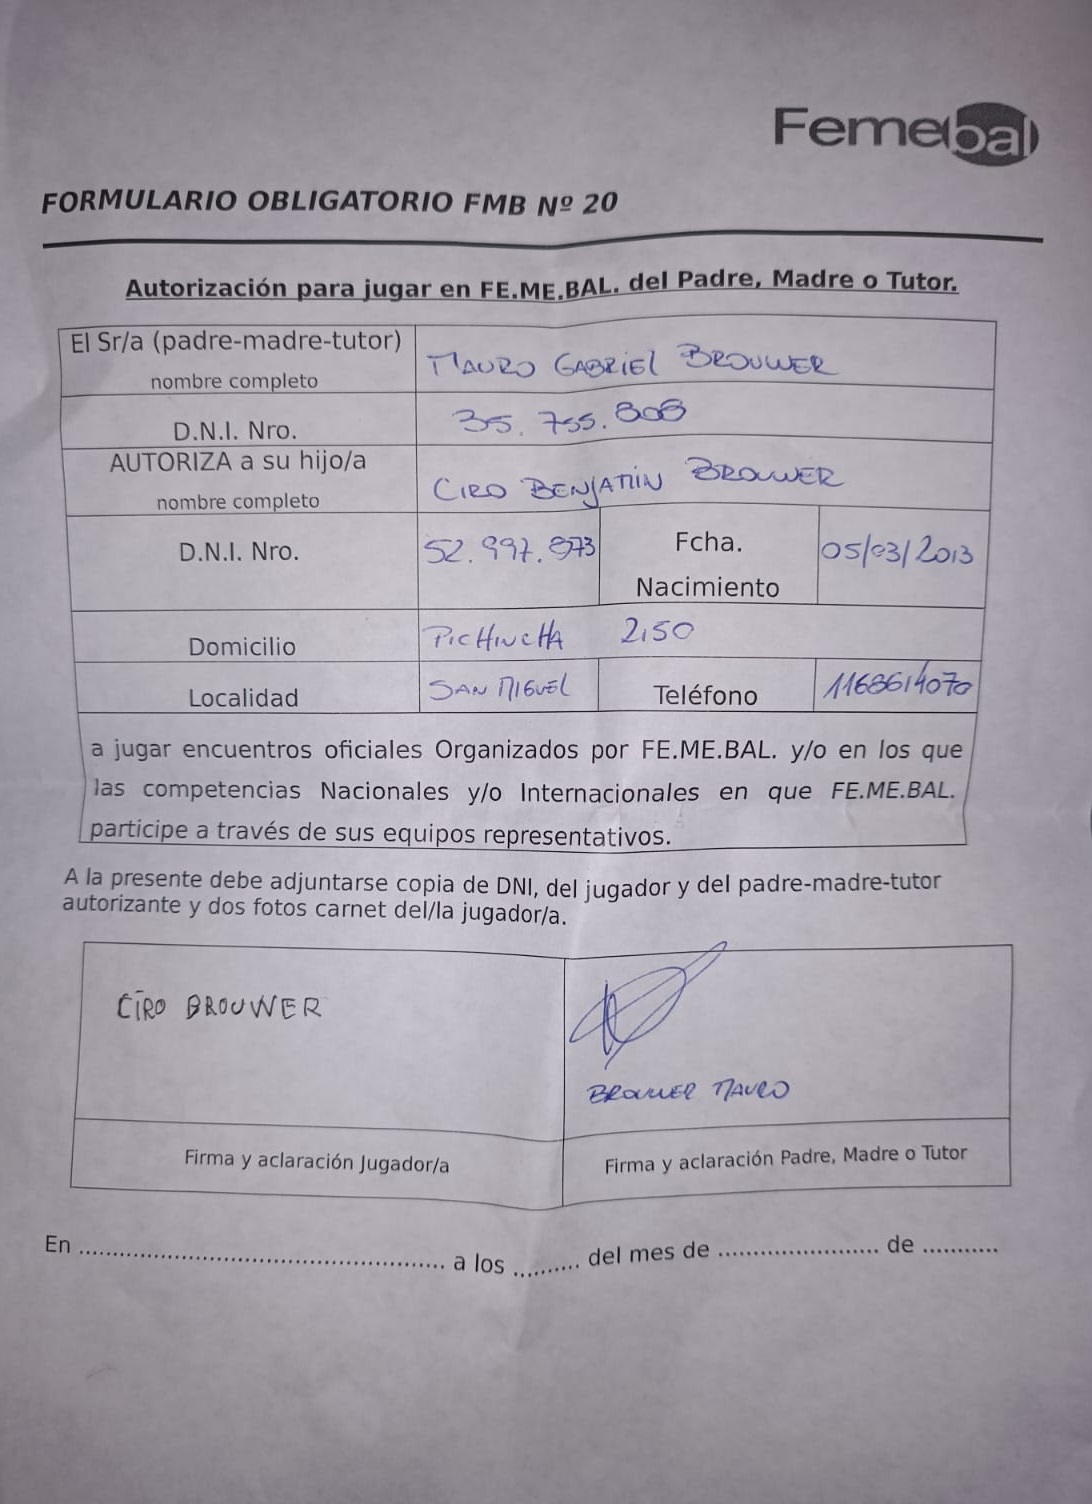 Femebal
FORMULARIO OBLIGATORIO FMB Nº 20
Autorización para jugar en FE.ME.BAL. del Padre, Madre o Tutor.
El Sr/a (padre-madre-tutor)
nombre completo
MAURO GABRIEL BROUWER
D.N.I. Nro.
35.755.808
AUTORIZA a su hijo/a
nombre completo
CIRO BENJAMÍN BROUWER
D.N.I. Nro.
52.997.873
Fcha.
Nacimiento
05/03/2013
Domicilio
PICHINCHA 2150
Localidad
SAN MIGUEL
Teléfono
1168614070
a jugar encuentros oficiales Organizados por FE.ME.BAL. y/o en los que
las competencias Nacionales y/o Internacionales en que FE.ME.BAL.
participe a través de sus equipos representativos.
A la presente debe adjuntarse copia de DNI, del jugador y del padre-madre-tutor
autorizante y dos fotos carnet del/la jugador/a.
CIRO BROUWER
BROUWER MAURO
Firma y aclaración Jugador/a
Firma y aclaración Padre, Madre o Tutor
En ........................................... a los .......... del mes de ........................ de ...........